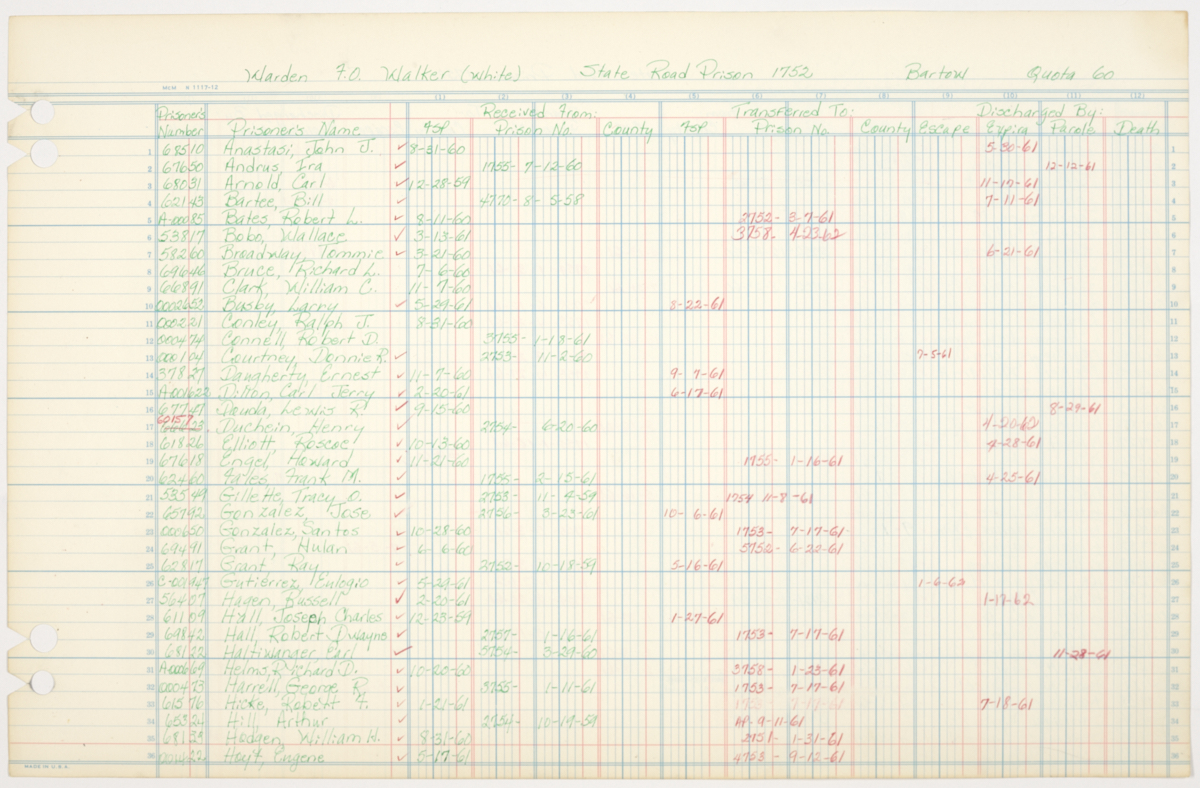 Warden F.O. Walker (White) State Road Prison 1752 Bartow Quota 60
(1) (2) (3) (4) (5) (6) (7) (8) (9) (10) (11) (12)
Prisoner's Received From: Transferred To: Discharged By:
Number Prisoner's Name FSP Prison No. County FSP Prison No. County Escape Expira Parole Death
1 68510 Anastasi, John J. ✓ 8-31-60 5-30-61 1
2 67650 Andrus, Ira ✓ 1755- 7-12-60 12-12-61 2
3 68031 Arnold, Carl ✓ 12-28-59 11-17-61 3
4 62143 Bartee, Bill ✓ 4770- 8- 5-58 7-11-61 4
5 A-00085 Bates, Robert L. ✓ 8-11-60 2752- 3-7-61 5
6 53817 Bobo, Wallace ✓ 3-13-61 3758- 4-23-62 6
7 58260 Broadway, Tommie ✓ 3-21-60 6-21-61 7
8 69646 Bruce, Richard L. 7- 6-60 8
9 66891 Clark, William C. 11- 7-60 9
10 0002652 Busby, Larry ✓ 5-29-61 8-22-61 10
11 000221 Conley, Ralph J. 8-31-60 11
12 000474 Connell, Robert D. 3755- 1-18-61 12
13 000104 Courtney, Donnie R. ✓ 2753- 11-2-60 7-5-61 13
14 37827 Daugherty, Ernest ✓ 11- 7-60 9- 7-61 14
15 A-001622 Dilton, Carl Jerry ✓ 2-20-61 6-17-61 15
16 67741 Douda, Lewis R. ✓ 9-15-60 8-29-61 16
17 60157 Duchein, Henry ✓ 2754- 6-20-60 4-20-62 17
18 61826 Elliott, Roscoe ✓ 10-13-60 4-28-61 18
19 67618 Engel, Howard ✓ 11-21-60 1755- 1-16-61 19
20 62460 Fales, Frank M. ✓ 1755- 2-15-61 4-25-61 20
21 55549 Gillette, Tracy O. ✓ 2753- 11- 4-59 1754 11-8 -61 21
22 65792 Gonzalez, Jose ✓ 2756- 3-23-61 10- 6-61 22
23 000650 Gonzalez, Santos ✓ 10-28-60 1753- 7-17-61 23
24 69491 Grant, Hulan ✓ 6- 6-60 5752- 6-22-61 24
25 62817 Grant, Ray ✓ 2752- 10-18-59 5-16-61 25
26 C-001947 Gutierrez, Eulogio ✓ 5-29-61 1-6-62 26
27 56407 Hagen, Russell ✓ 2-20-61 1-17-62 27
28 61109 Hall, Joseph Charles ✓ 12-23-59 1-27-61 28
29 69842 Hall, Robert Dwayne ✓ 2757- 1-16-61 1753- 7-17-61 29
30 68122 Haltiwanger Earl ✓ 5754- 3-29-60 11-28-61 30
31 A-000669 Helms, Richard D. ✓ 10-20-60 3758- 1-23-61 31
32 000473 Harrell, George R. ✓ 3755- 1-11-61 1753- 7-17-61 32
33 61576 Hicks, Robert F. ✓ 1-21-61 7-18-61 33
34 65324 Hill, Arthur ✓ 2754- 10-19-59 9-11-61 34
35 68133 Hodgen, William H. ✓ 8-31-60 2751- 1-31-61 35
36 Hoyt, Eugene ✓ 5-17-61 4753- 9-12-61 36
MADE IN U.S.A.